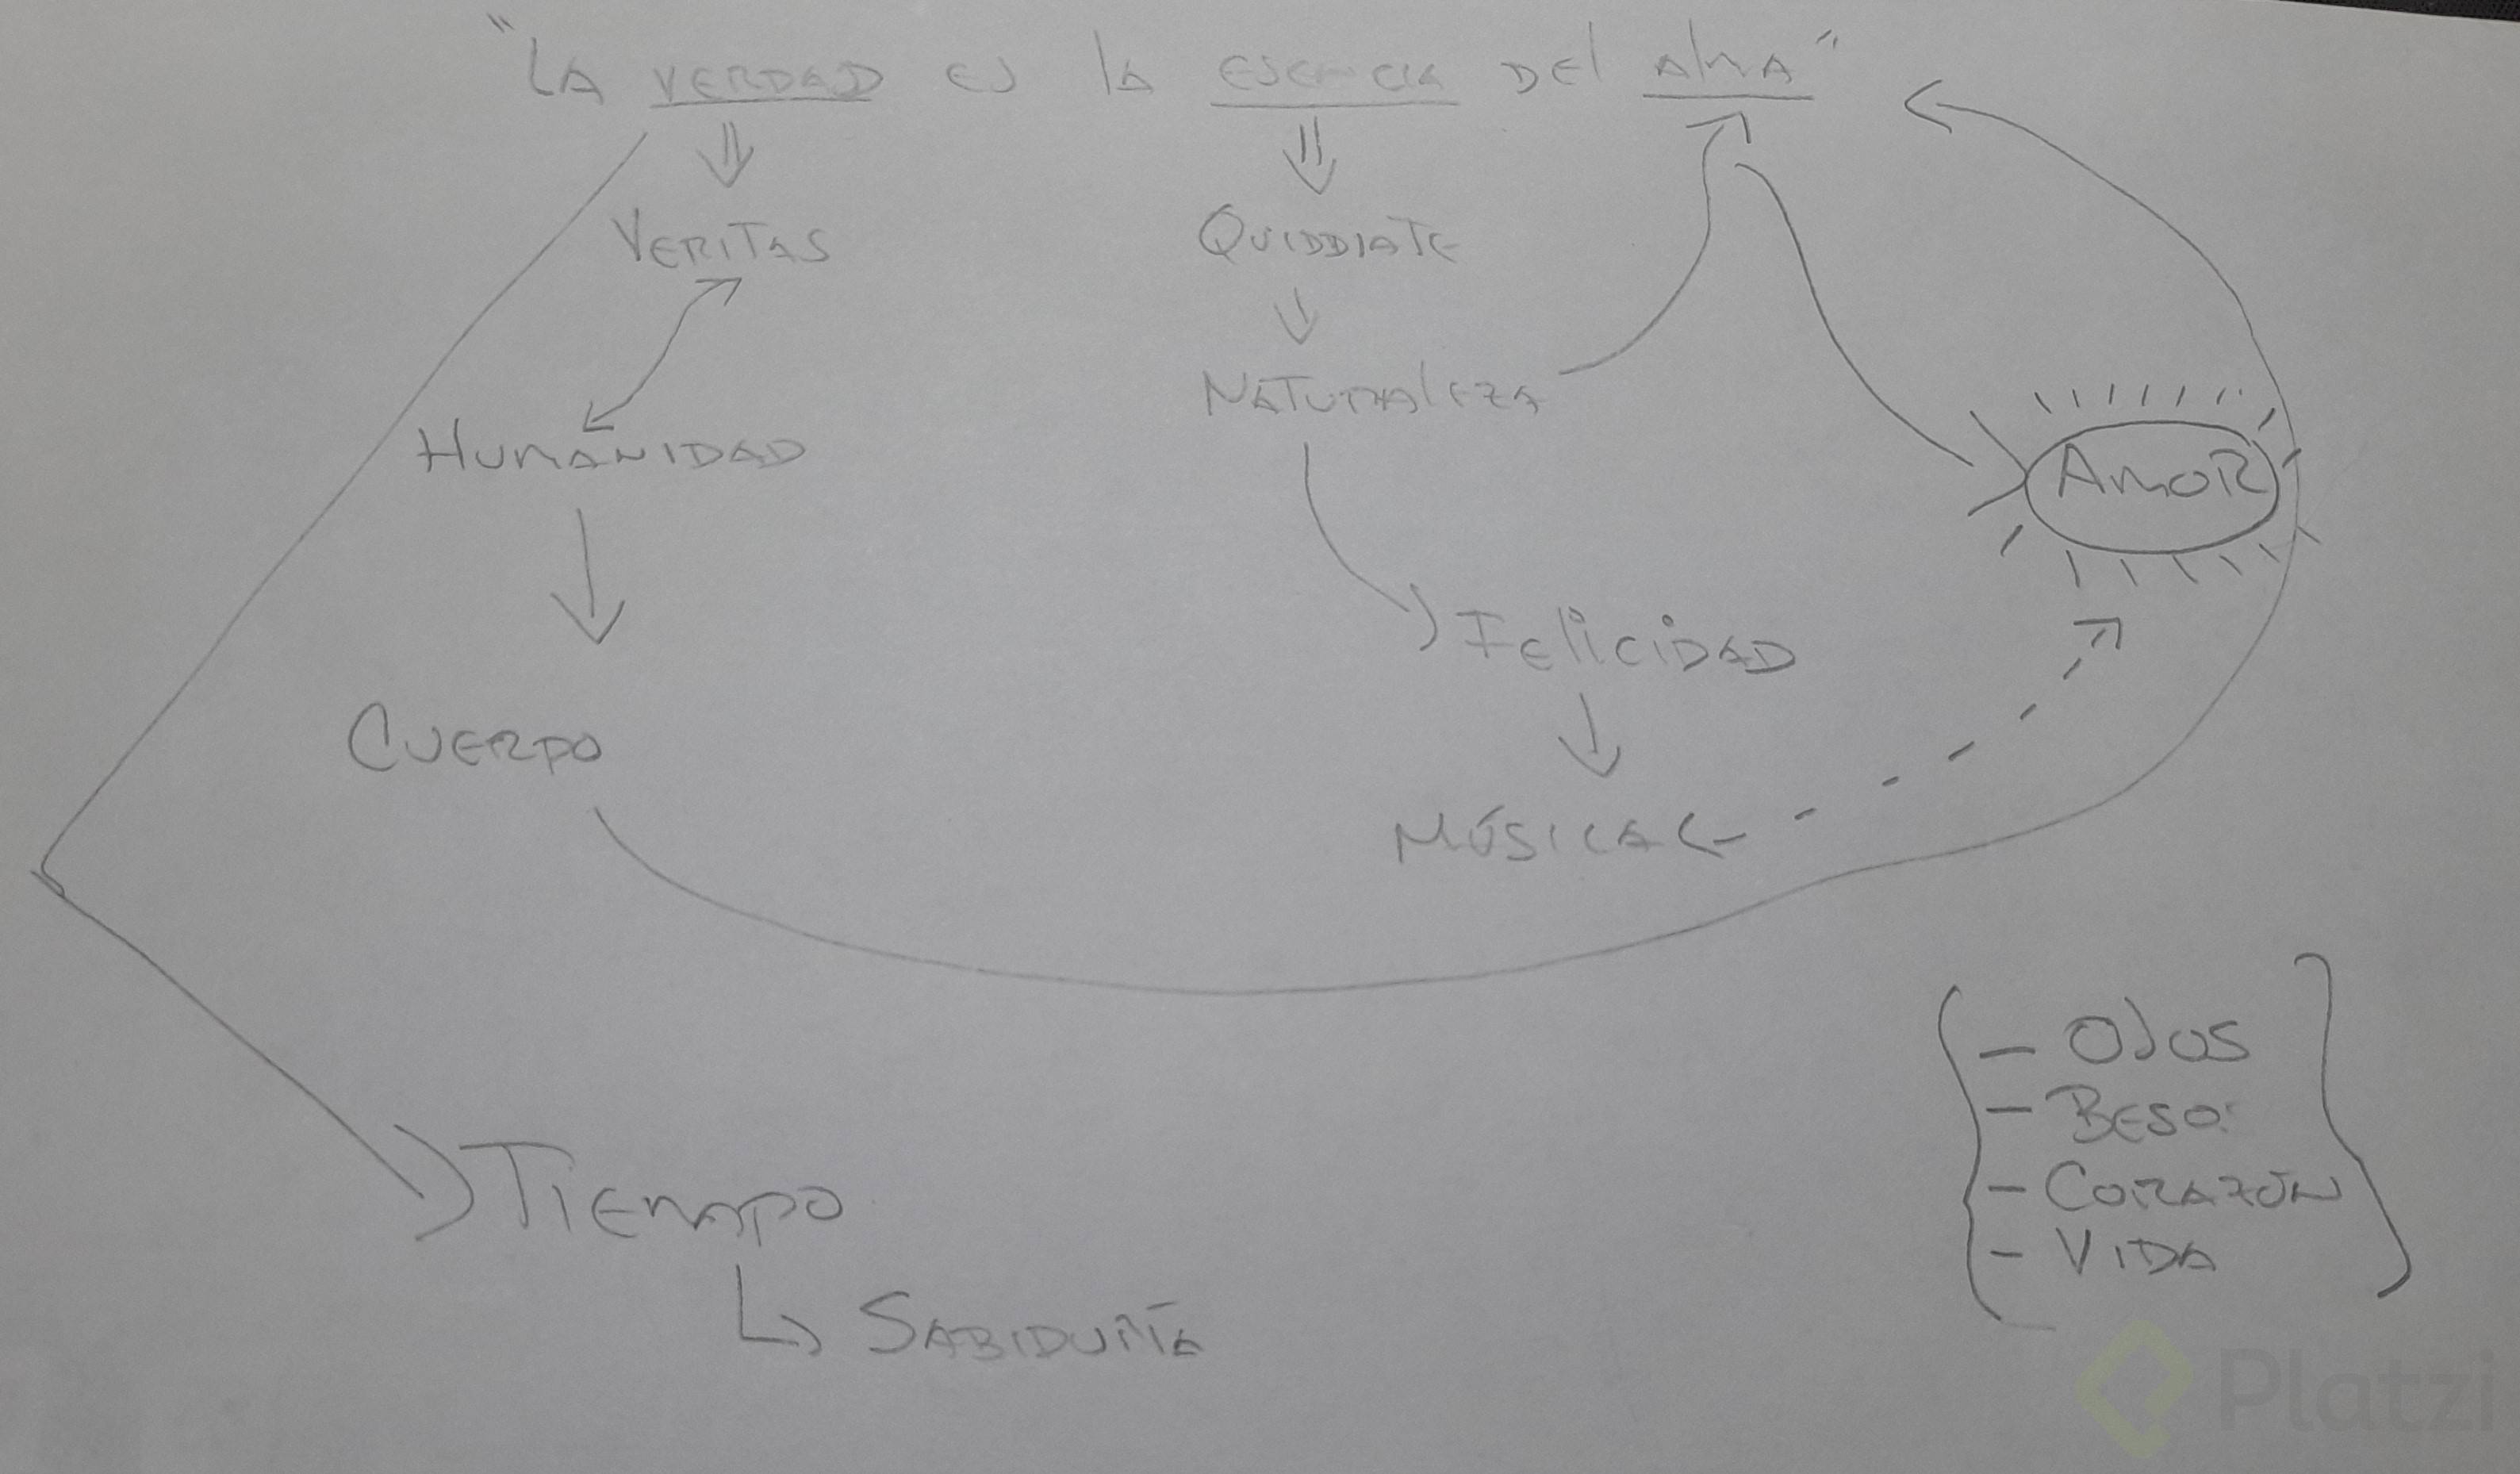 "LA VERDAD ES LA ESENCIA DEL ALMA"
VERITAS
QUIDDIATE
NATURALEZA
HUMANIDAD
AMOR
FELICIDAD
CUERPO
MÚSICA
- OJOS
- BESO
- CORAZÓN
- VIDA
TIEMPO
SABIDURÍA
Platzi